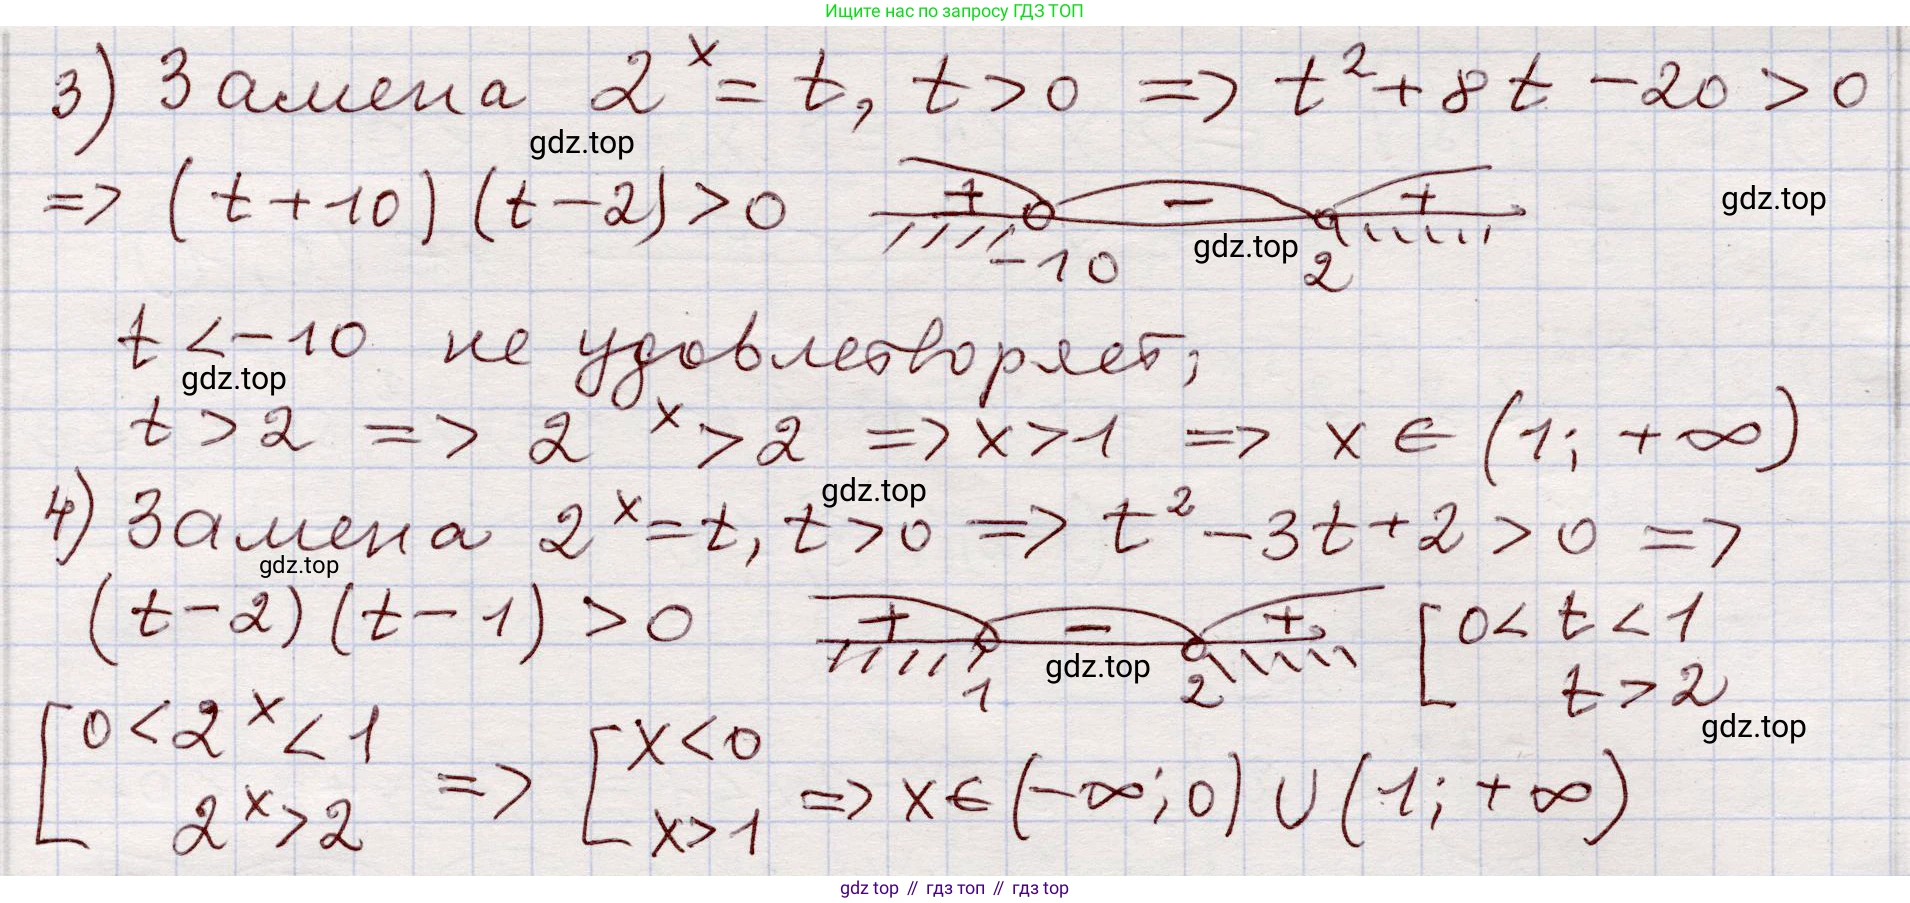 Ищите нас по запросу ГДЗ ТОП
3) Замена 2^x = t, t > 0 => t² + 8t - 20 > 0
gdz.top
=> (t + 10)(t - 2) > 0 + - +
gdz.top
gdz.top
-10 2
t < -10 не удовлетворяет;
gdz.top
t > 2 => 2^x > 2 => x > 1 => x ∈ (1; +∞)
gdz.top
4) Замена 2^x = t, t > 0 => t² - 3t + 2 > 0 =>
gdz.top
(t - 2)(t - 1) > 0 + - + [ 0 < t < 1
gdz.top
1 2 t > 2
gdz.top
[ 0 < 2^x < 1 [ x < 0
=> => x ∈ (-∞; 0) ∪ (1; +∞)
2^x > 2 x > 1
gdz top // гдз топ // гдз top